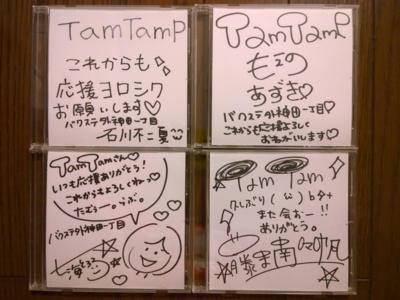 TamTamP
これからも
応援ヨロシク
お願いします♡
バクステ外神田一丁目
石川不二夏
TamTamP
もこの
あずき♡
バクステ外神田一丁目
これからも応援よろしく
おねがいします♡
TamTamさん♡
いつも応援ありがとう!
これからもよろしくねっ♡
だむぅー。らぶ。
バクステ外神田一丁目
Tam Tam
久しぶり(ω)bタ+
また会おー!!
ありがとう。